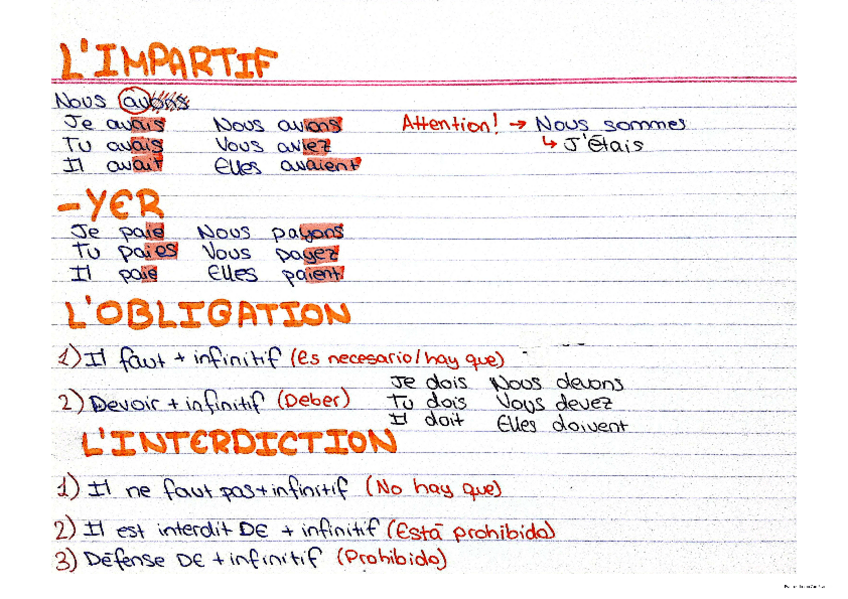 L'IMPARTIF
Nous avons
Je avais Nous avions Attention! → Nous sommes
Tu avais Vous aviez ↳ J'étais
Il avait Elles avaient
-YER
Je paie Nous payons
Tu paies Vous payez
Il paie Elles paient
L'OBLIGATION
1) Il faut + infinitif (Es necesario/hay que)
Je dois Nous devons
2) Devoir + infinitif (Deber) Tu dois Vous devez
Il doit Elles doivent
L'INTERDICTION
1) Il ne faut pas + infinitif (No hay que)
2) Il est interdit DE + infinitif (Está prohibido)
3) Défense DE + infinitif (Prohibido)